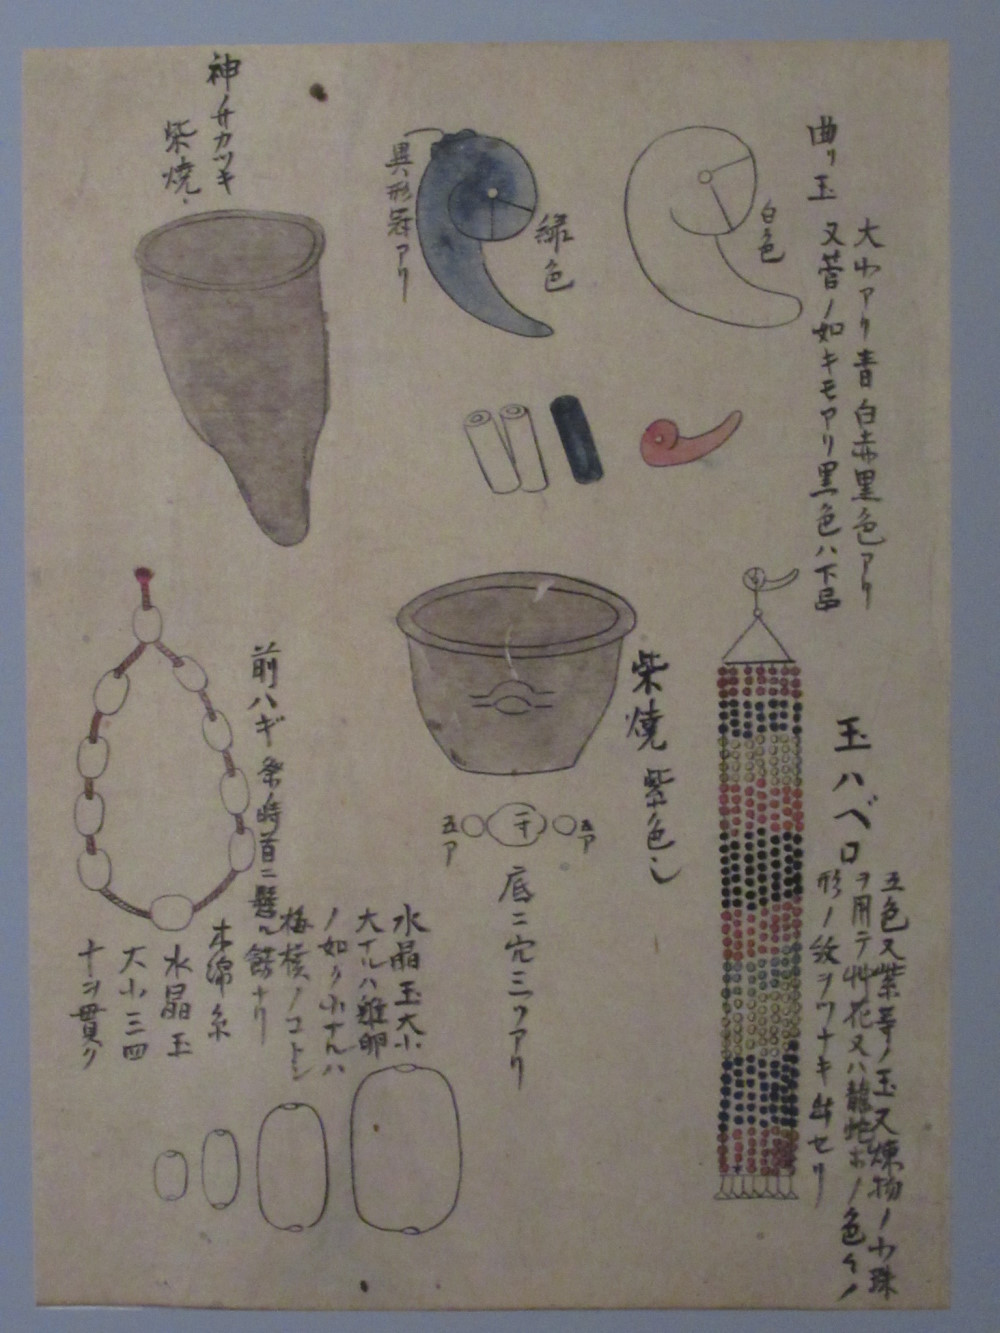 曲リ玉
大小アリ青白赤黒色アリ
又菅ノ如キモアリ黒色ハ下品
白色
緑色
異形冠アリ
神ノサカツキ
柴焼
玉ハベロ
五色又紫等ノ玉又煉物ノ小珠
ヲ用テ艸花又ハ龍蛇ホノ色々ノ
形ノ紋ヲツナキ出セリ
柴焼 紫色
五ア
五ア
底ニ穴三ツアリ
前ハギ 祭ノ時首ニ懸ル餝ナリ
木綿糸
水晶玉
大小三四
十ヲ貫ク
水晶玉大小
大ナルハ雞卵
ノ如ク小ナルハ
梅核ノコトシ